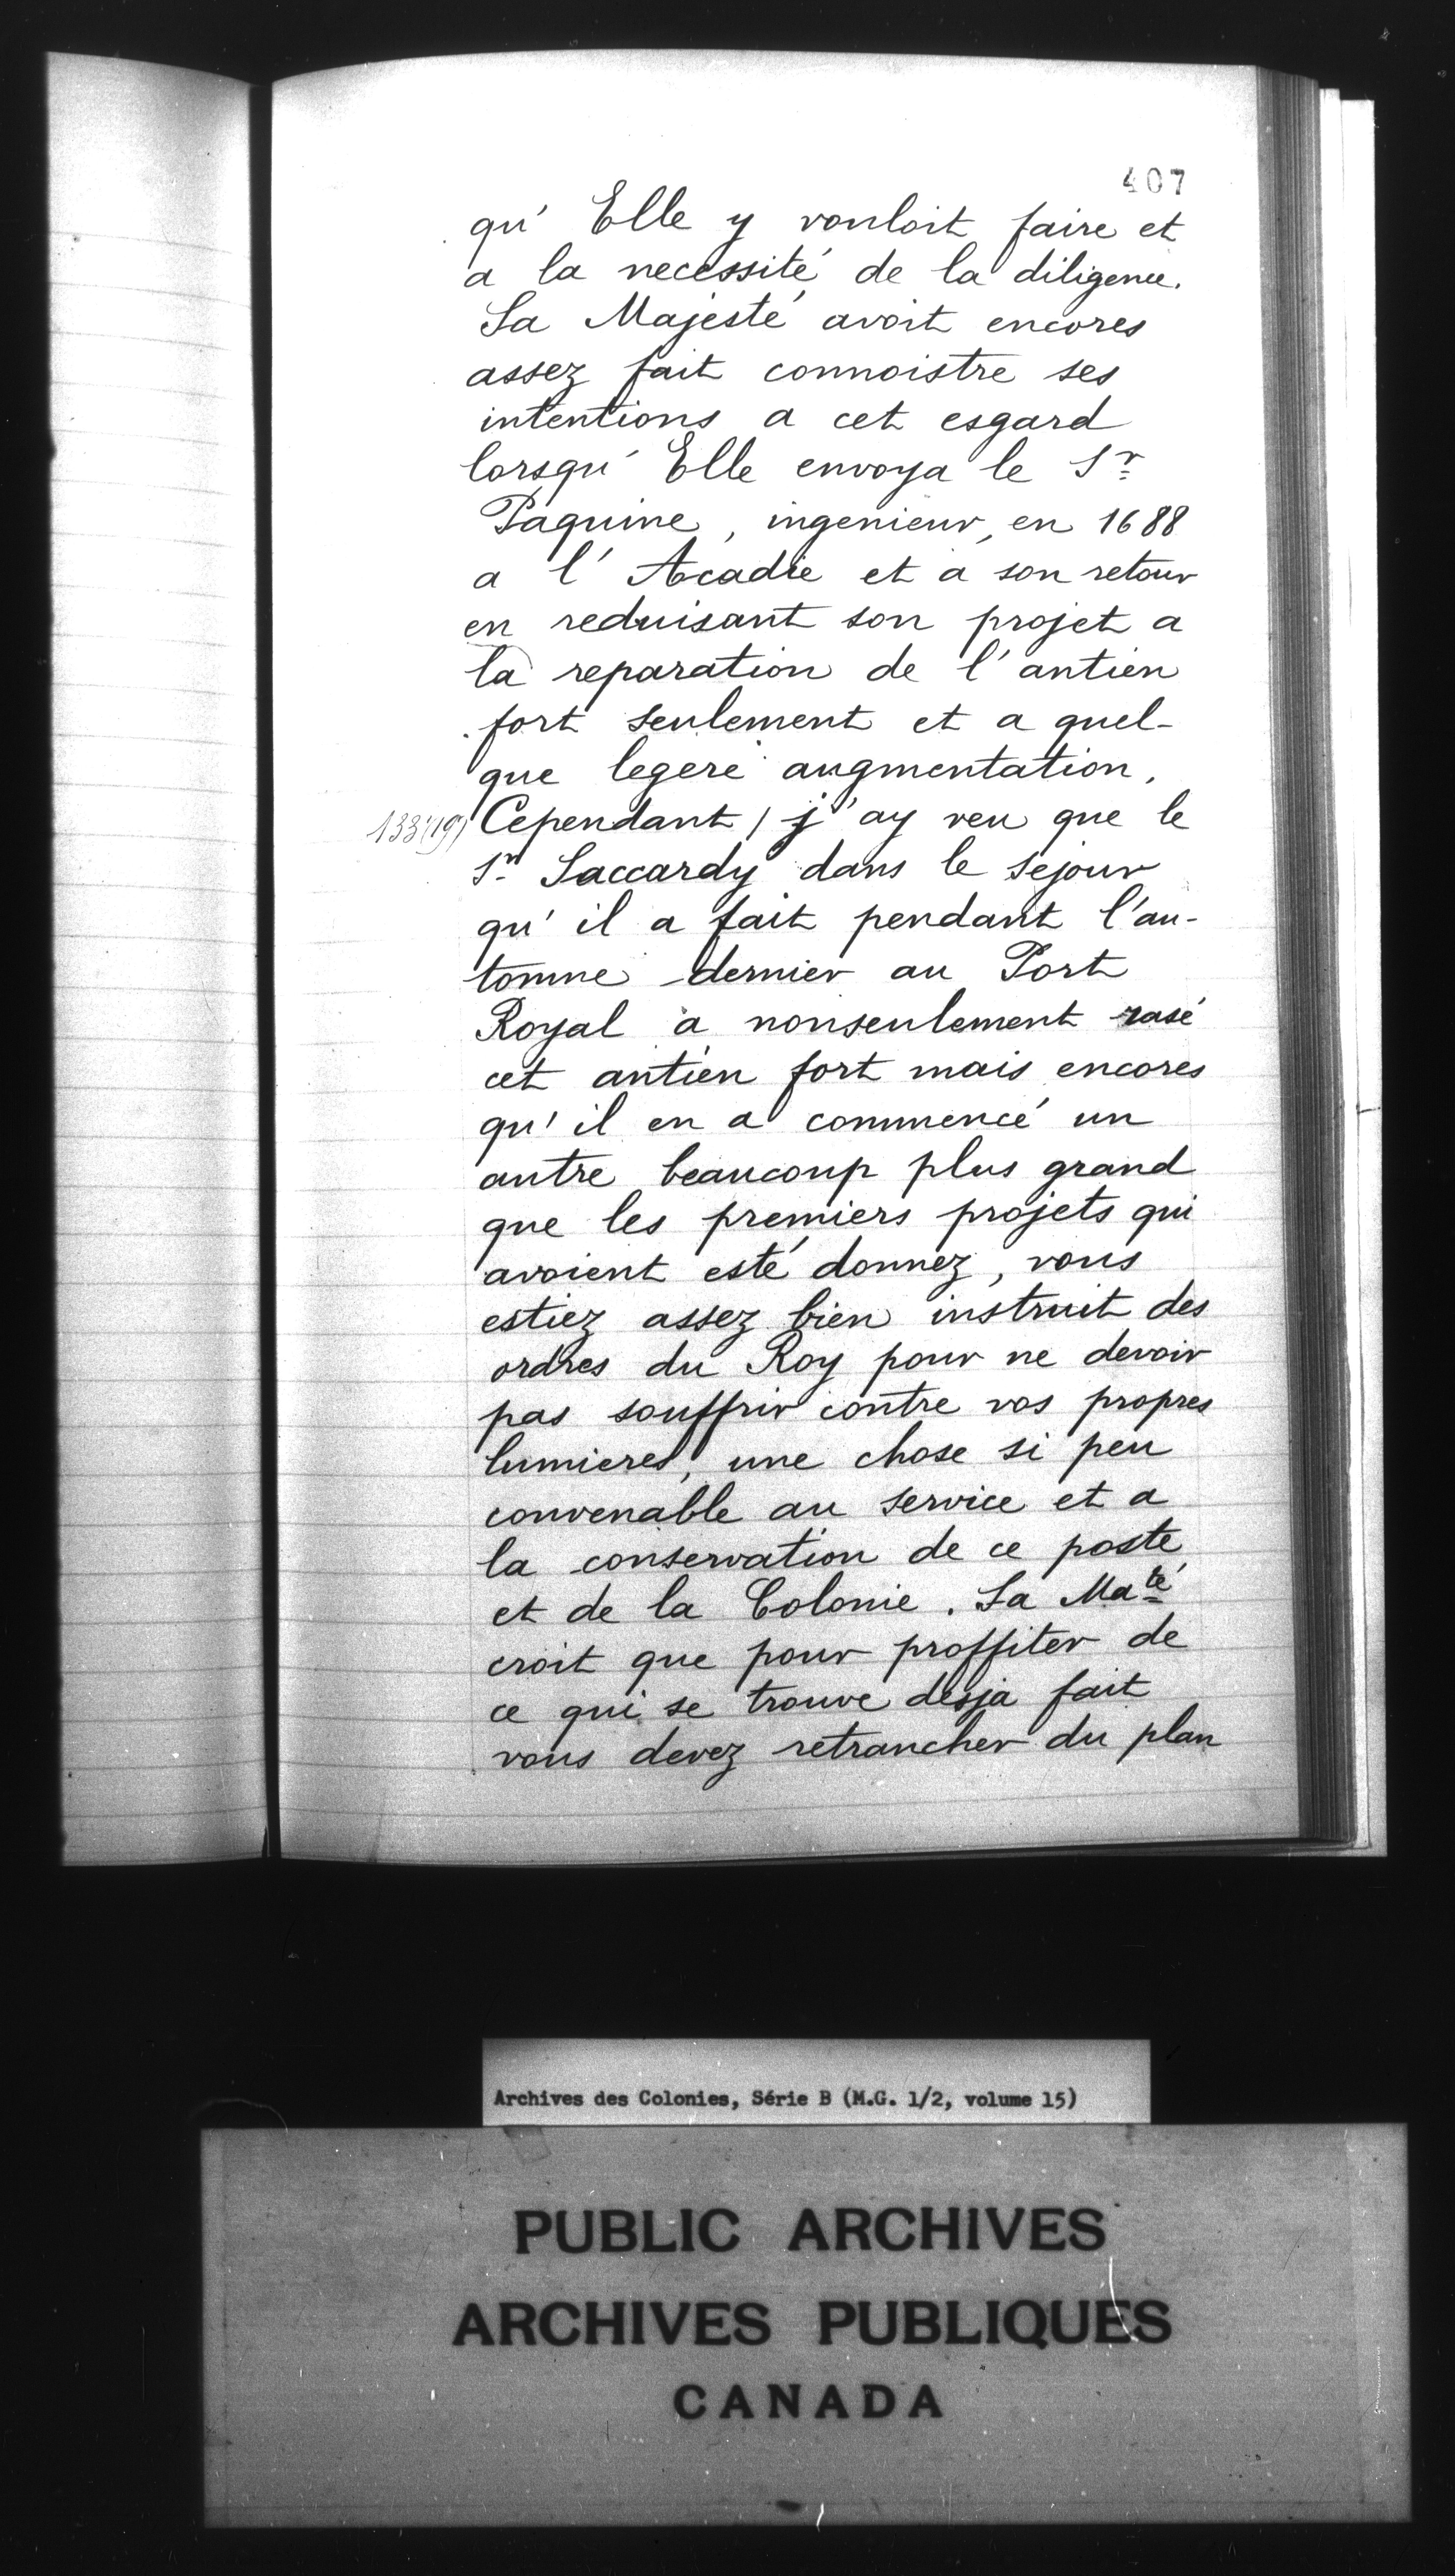 407
qu' Elle y vouloit faire et
a la necessité de la diligence.
Sa Majesté avoit encores
assez fait connoistre ses
intentions a cet esgard
lorsqu' Elle envoya le Sr
Paquine, ingenieur, en 1688
a l' Acadie et a son retour
en reduisant son projet a
la reparation de l' antien
fort seulement et a quel-
que legere augmentation.
Cependant / j' ay veu que le
Sr Saccardy dans le sejour
qu' il a fait pendant l'au-
tomne dernier au Port
Royal a nonseulement rasé
cet antien fort mais encores
qu' il en a commencé un
autre beaucoup plus grand
que les premiers projets qui
avoient esté donnez, vous
estiez assez bien instruit des
ordres du Roy pour ne devoir
pas souffrir contre vos propres
lumieres, une chose si peu
convenable au service et a
la conservation de ce poste
et de la Colonie. Sa Maté
croit que pour proffiter de
ce qui se trouve desja fait
vous devez retrancher du plan
Archives des Colonies, Série B (M.G. 1/2, volume 15)
PUBLIC ARCHIVES
ARCHIVES PUBLIQUES
CANADA